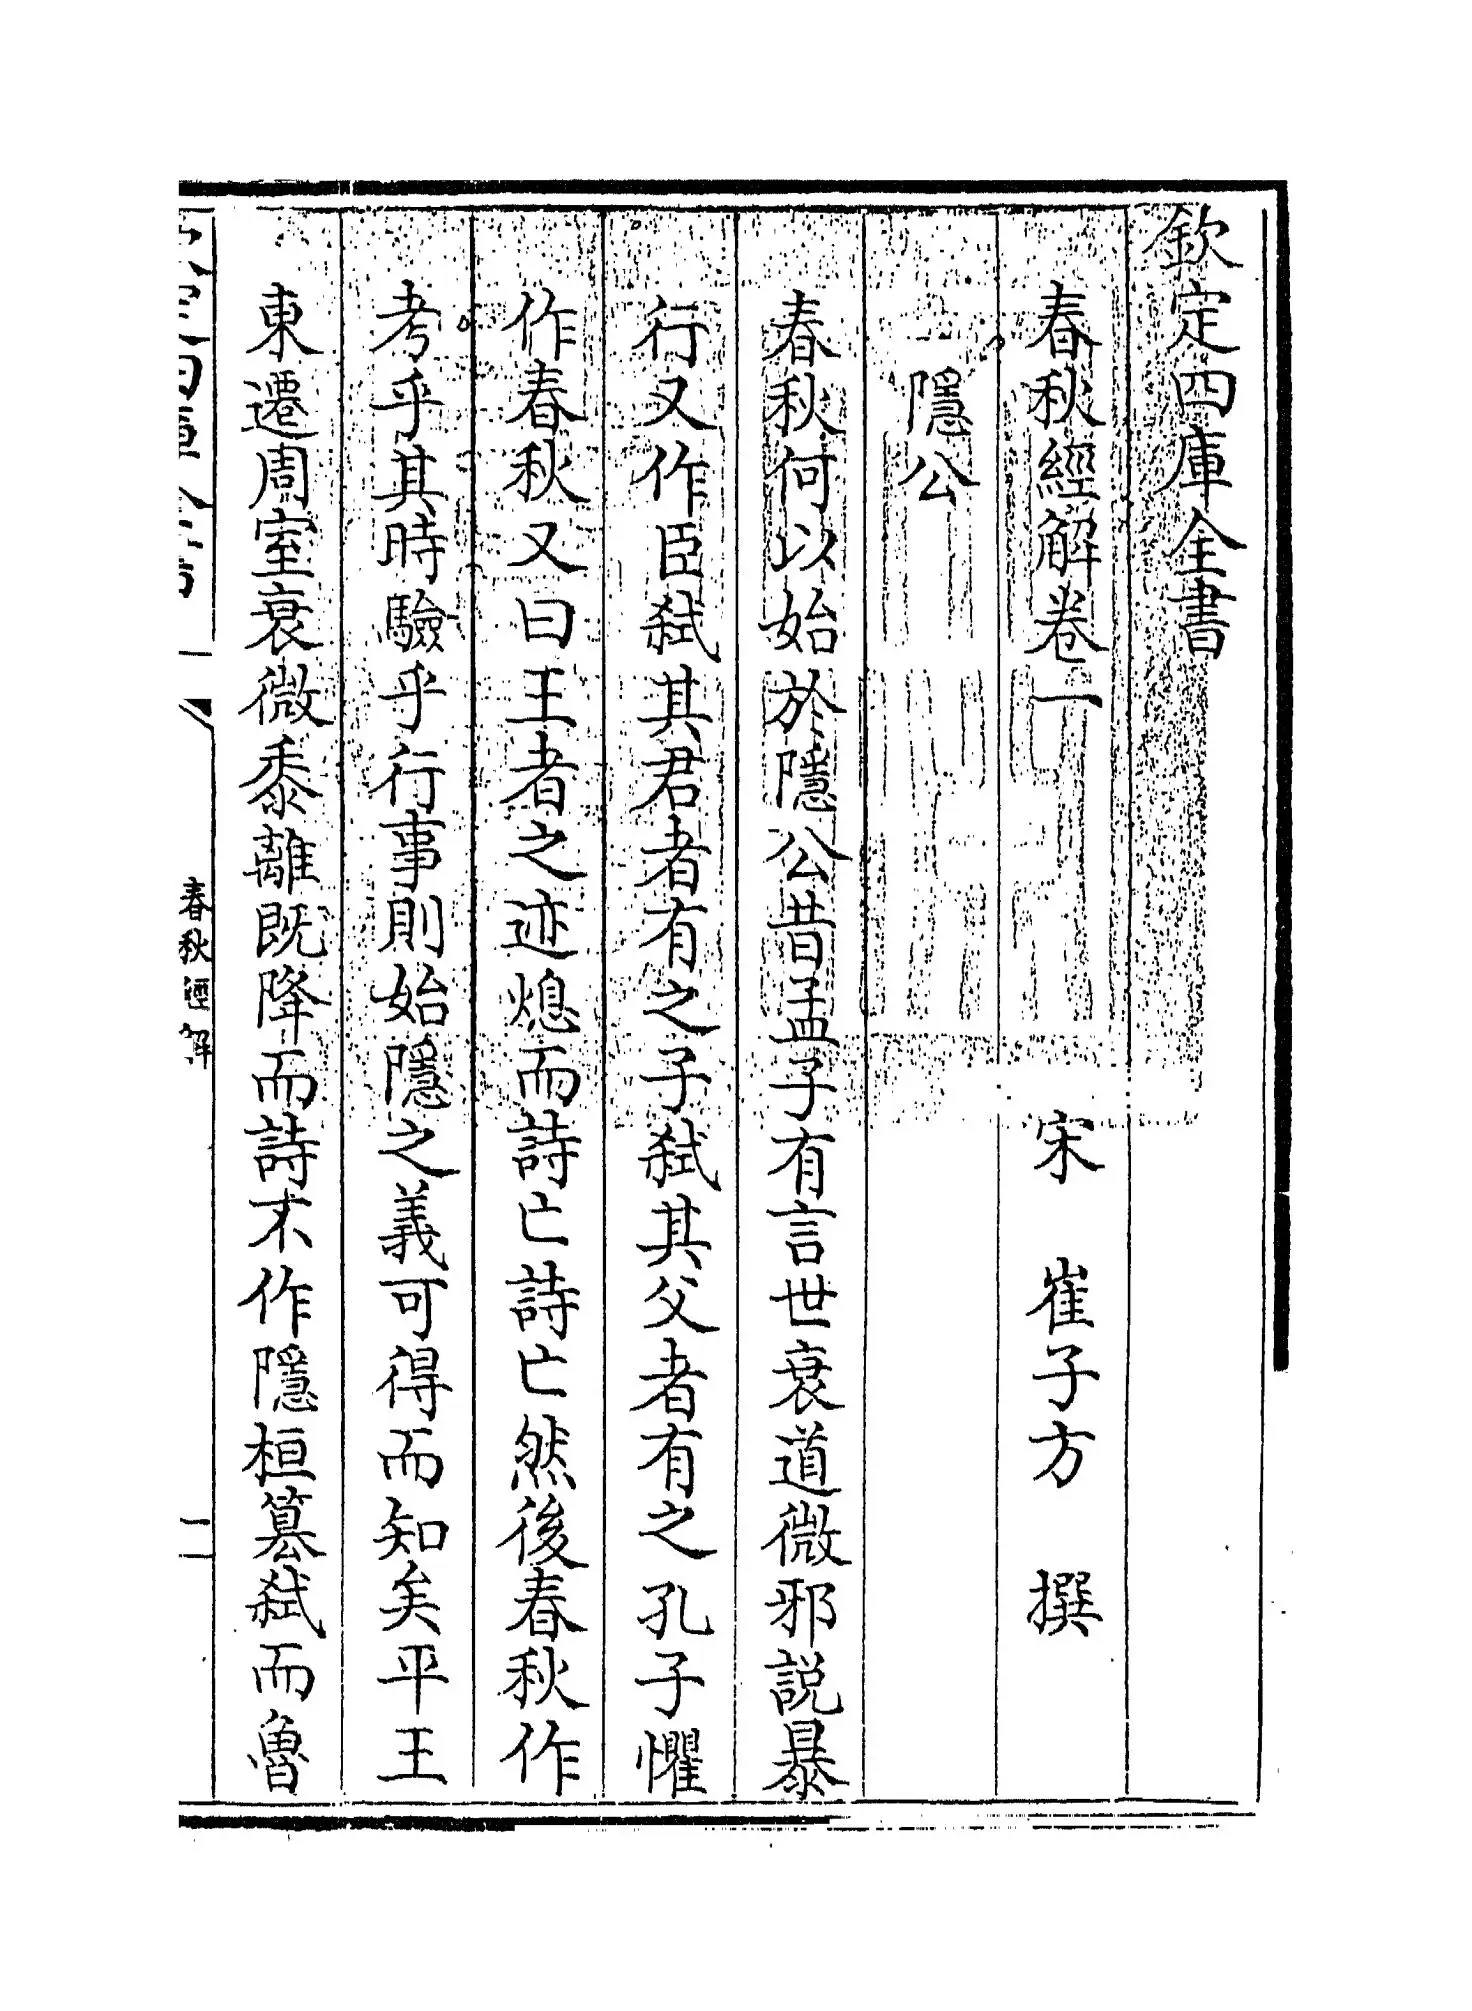 欽定四庫全書
春秋經解卷一　　　宋　崔子方　撰
隱公
春秋何以始於隱公昔孟子有言世衰道微邪説暴
行又作臣弑其君者有之子弑其父者有之孔子懼
作春秋又曰王者之迹熄而詩亡詩亡然後春秋作
考乎其時驗乎行事則始隱之義可得而知矣平王
東遷周室衰微黍離既降而詩不作隱桓簒弑而魯
春秋經解